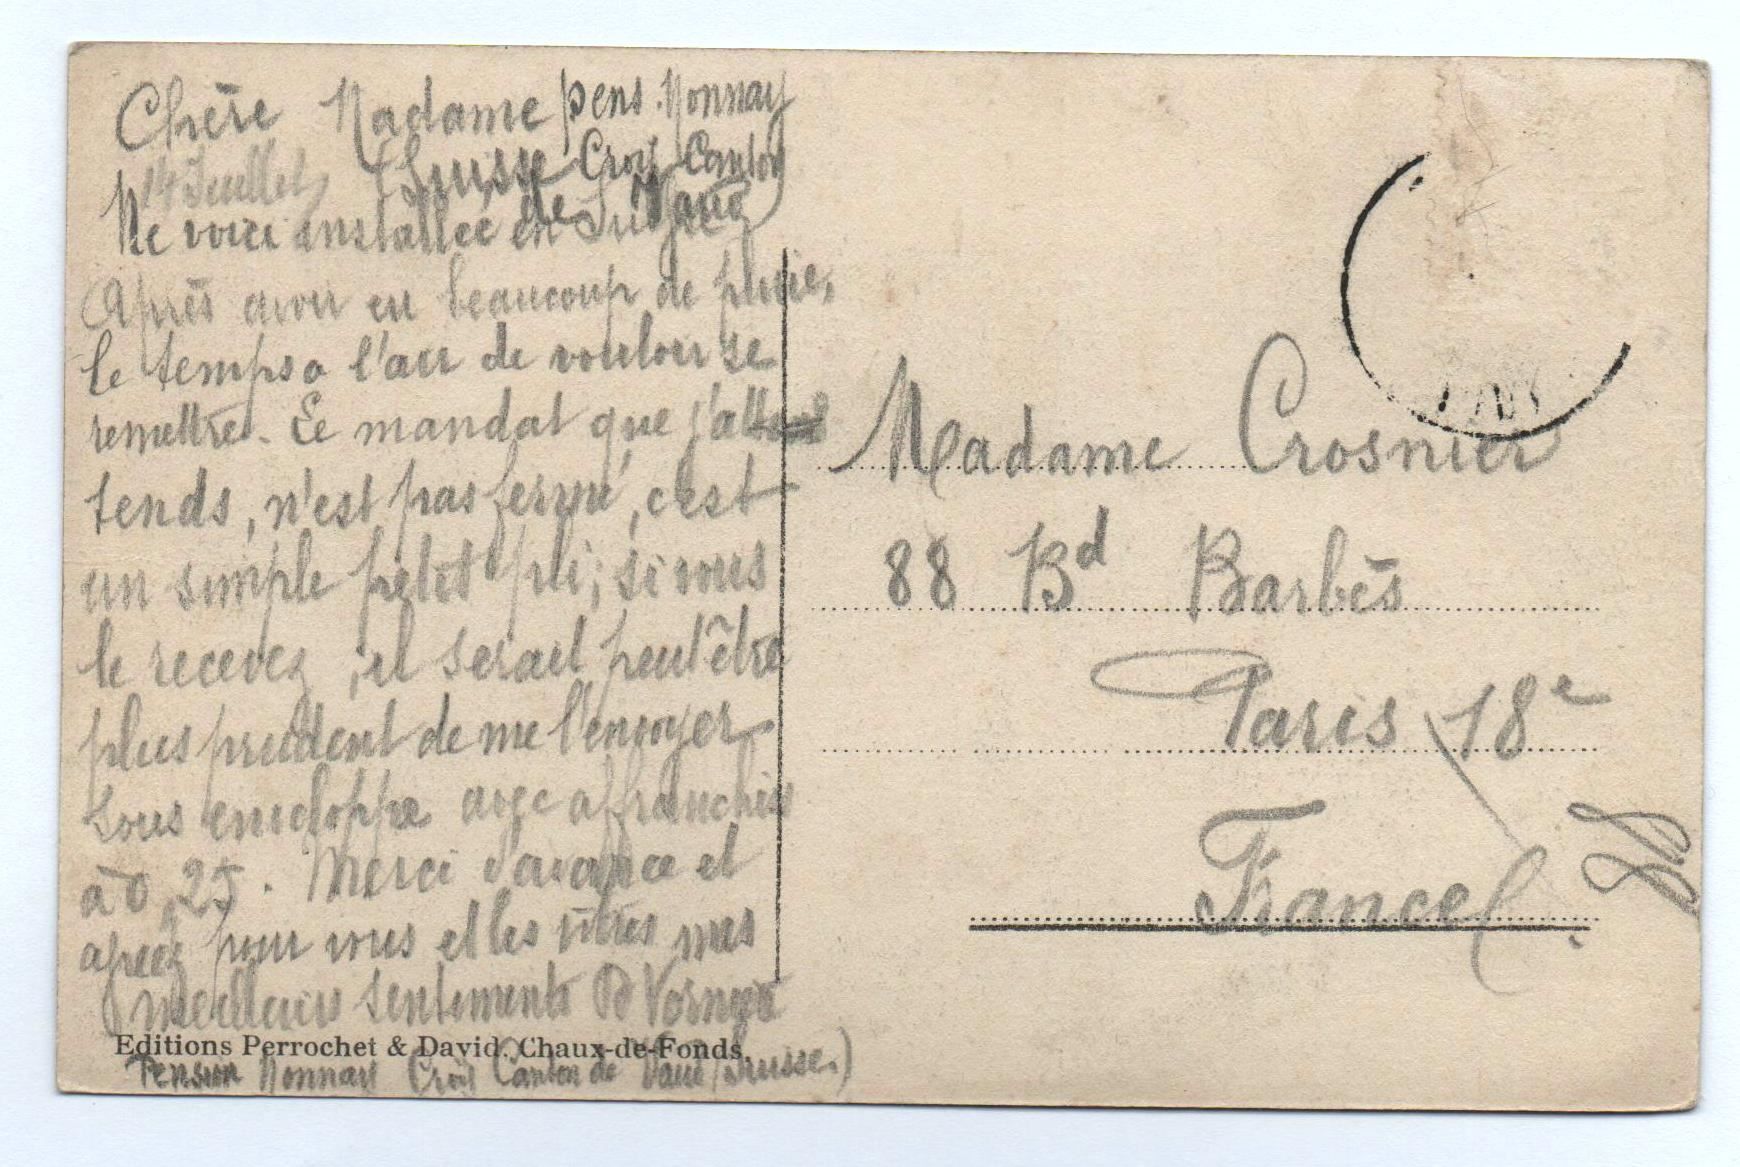 Chère Madame pens. Monnay
14 Juillet (Suisse Croy Canton
de Vaud)
Me voici installée en Suisse
Après avoir eu beaucoup de pluie,
le temps a l'air de vouloir se
remettre. Le mandat que j'at
tends, n'est pas fermé, c'est
un simple petit pli; si vous
le recevez, il serait peut être
plus prudent de me l'envoyer
sous enveloppe avec affranchis
à 0,25. Merci d'avance et
agréez pour vous et les vôtres mes
meilleurs sentiments
Editions Perrochet & David. Chaux-de-Fonds.
Pension Monnay Croy Canton de Vaud (Suisse.)
Madame Crosnier
88 Bd Barbès
Paris 18e
France